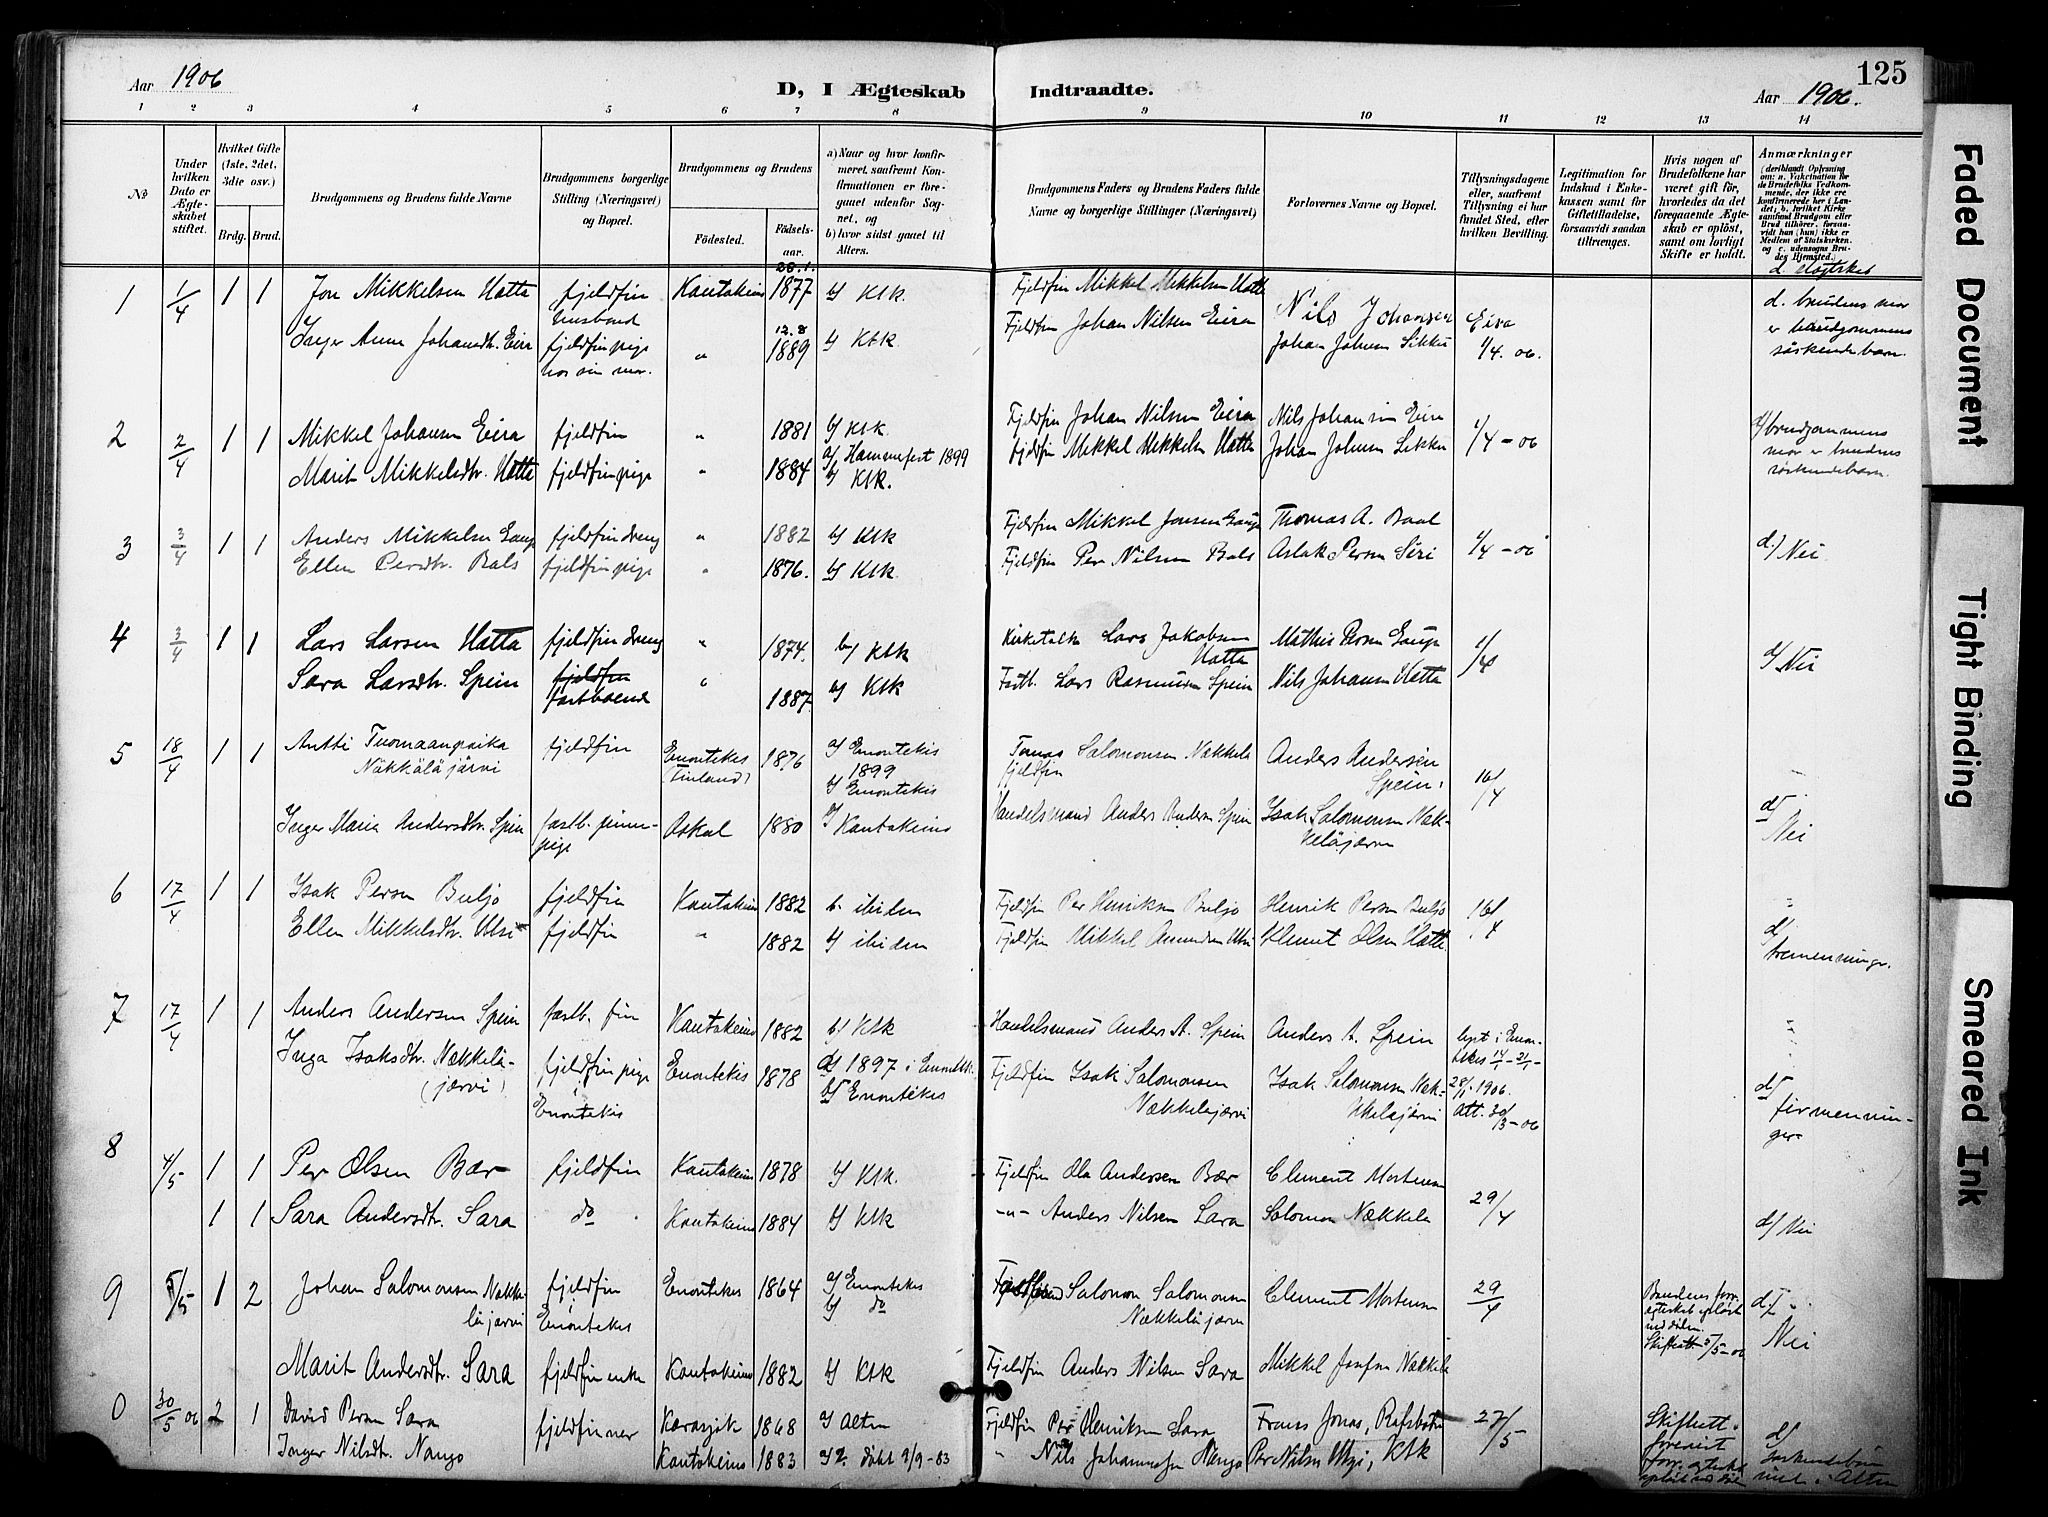 Aar 1906
D, I Ægteskab Indtraadte.
Aar 1906.
125
1 2 3 4 5 6 7 8 9 10 11 12 13 14
No
Under hvilken Dato er Ægteskabet stiftet.
Hvilket Gifte (1ste, 2det, 3die osv.)
Brdg. Brud.
Brudgommens og Brudens fulde Navne
Brudgommens borgerlige Stilling (Næringsvei) og Bopæl.
Brudgommens og Brudens
Fødested.
Fødselsaar.
a) Naar og hvor konfirmeret, saafremt Konfirmationen er foregaaet udenfor Sognet, og
b) hvor sidst gaaet til Alters.
Brudgommens Faders og Brudens Faders fulde Navne og borgerlige Stillinger (Næringsvei)
Forlovernes Navne og Bopæl.
Tillysningsdagene eller, saafremt Tillysning ei har fundet Sted, efter hvilken Bevilling.
Legitimation for Indskud i Enkekassen samt for Giftetilladelse, forsaavidt saadan tiltrænges.
Hvis nogen af Brudefolkene har været gift før, hvorledes da det foregaaende Ægteskab er opløst, samt om lovligt Skifte er holdt.
Anmærkninger (deriblandt Oplysning om: a. Vaccination for de Brudefolks Vedkommende, der ikke ere konfirmerede her i Landet; b. hvilket Kirkesamfund Brudgom eller Brud tilhører, forsaavidt han (hun) ikke er Medlem af Statskirken. og c. udensogns Brudes Hjemsted.)
d. slægtskab
1 1/4 1 1 Jon Mikkelsen Hatta fjeldfin Kautokeino 28.1. 1877 b) Ktk. Fjeldfin Mikkel Mikkelsen Hatta Nils Johansen Eira d. brudens mor
husbond
Inger Anne Johansdtr. Eira fjeldfinpige " 12.8 1889 b) Ktk. Fjeldfin Johan Nilsen Eira Johan Johnsen Sikku 1/4. 06. er brudgommens
hos sin mor. søskendebarn.
2 2/4 1 1 Mikkel Johansen Eira fjeldfin " 1881 b) Ktk. Fjeldfin Johan Nilsen Eira Nils Johansen Eira 1/4 - 06 d) brudgommens
Marit Mikkelsdtr. Hatta fjeldfinpige " 1884 a) Hammerfest 1899 fjeldfin Mikkel Mikkelsen Hatta Johan Johnsen Sikku mor er brudens
b) Ktk. søskendebarn.
3 3/4 1 1 Anders Mikkelsen Gaup fjeldfindreng " 1882 b) Ktk Fjeldfin Mikkel Jonsen Gaup Thomas A. Baal 1/4 - 06 d.) Nei
Ellen Persdtr. Bals fjeldfinpige " 1876. b) Ktk. Fjeldfin Per Nilsen Bals Aslak Persen Siri
4 3/4 1 1 Lars Larsen Hatta fjeldfindreng " 1874. b) Ktk Kirketolk Lars Jakobsen Hatta Mathis Persen Gaup 1/4 d) Nei
Sara Larsdtr. Spein fjeldfin fastboende " 1887. b) Ktk Fastb. Lars Rasmussen Spein Nils Johansen Hatta
5 18/4 1 1 Antti Tuomaanpoika fjeldfin Enontekis 1876 a) Enontekis Tomas Salomonsen Nækkelä Anders Andersen
Näkkäläjärvi (Finland) 1899 fjeldfin Spein, 16/4
b) Enontekis
Inger Maria Andersdtr. Spein fastb. finnepige Oskal 1880 b) Kautokeino Handelsmand Anders Andersen Spein Isak Salomonsen Nækkeläjærvi d) Nei
6 17/4 1 1 Isak Persen Buljo fjeldfin Kautokeino 1882 b. ibidem Fjeldfin Per Henriksen Buljo Henrik Persen Buljo 16/4 d)
Ellen Mikkelsdtr. Utsi fjeldfin " 1882 b) ibidem Fjeldfin Mikkel Amundsen Utsi Klemet Olsen Hatta tremenninger.
7 17/4 1 1 Anders Andersen Spein fastb. fin Kautokeino 1882 b) Ktk Handelsmand Anders A. Spein Anders A. Spein lyst i Enontekis 14/1 - 21/1 -
Inga Isaksdtr. Nækkelä- fjeldfinpige Enontekis 1878 a) 1897 i Enontekis Fjeldfin Isak Salomonsen Isak Salomonsen Næk- 28/1 1906. d)
(järvi) Enontekis b) Enontekis Nækkeläjærvi kelajärvi Att. 30/3 - 06 firmenninger
8 4/5 1 1 Per Olsen Bær fjeldfin Kautokeino 1878 b) Ktk. Fjeldfin Ola Andersen Bær Clement Mortensen 29/4
1 1 Sara Andersdtr. Sara do Kautokeino 1884 b) Ktk -"- Anders Nilsen Sara Salomon Nækkelä d) Nei
9 5/5 1 2 Johan Salomonsen Nække- fjeldfin Enontekis 1864 a) Enontekis Salomon Salomonsen Clement Mortensen 29/4 Brudens forr. ægteskab opløst d)
läjærvi i Enontekis b) do Nækkeläjærvi ved døden. Skifteatt. 5/5 - 06 Nei
Marit Andersdtr. Sara fjeldfin enke Kautokeino 1882 b) Ktk Fjeldfin Anders Nilsen Sara Mikkel Josefsen Nækkelä
0 30/5 06 2 1 David Persen Sara fjeldfinner Karasjok 1868 b) Alten Fjeldfin Per Henriksen Sara Frans Jonas, Rafsbotn 27/5 Skifteatt. forevist d)
Inger Nilsdtr. Nango Kautokeino 1883 døbt 2/9 - 83 " Nils Johannesen Nango Per Nilsen Utsi, Ktk forr. ægteskab Søskendebørn
opløst ved død i Alten
Faded Document
Tight Binding
Smeared Ink